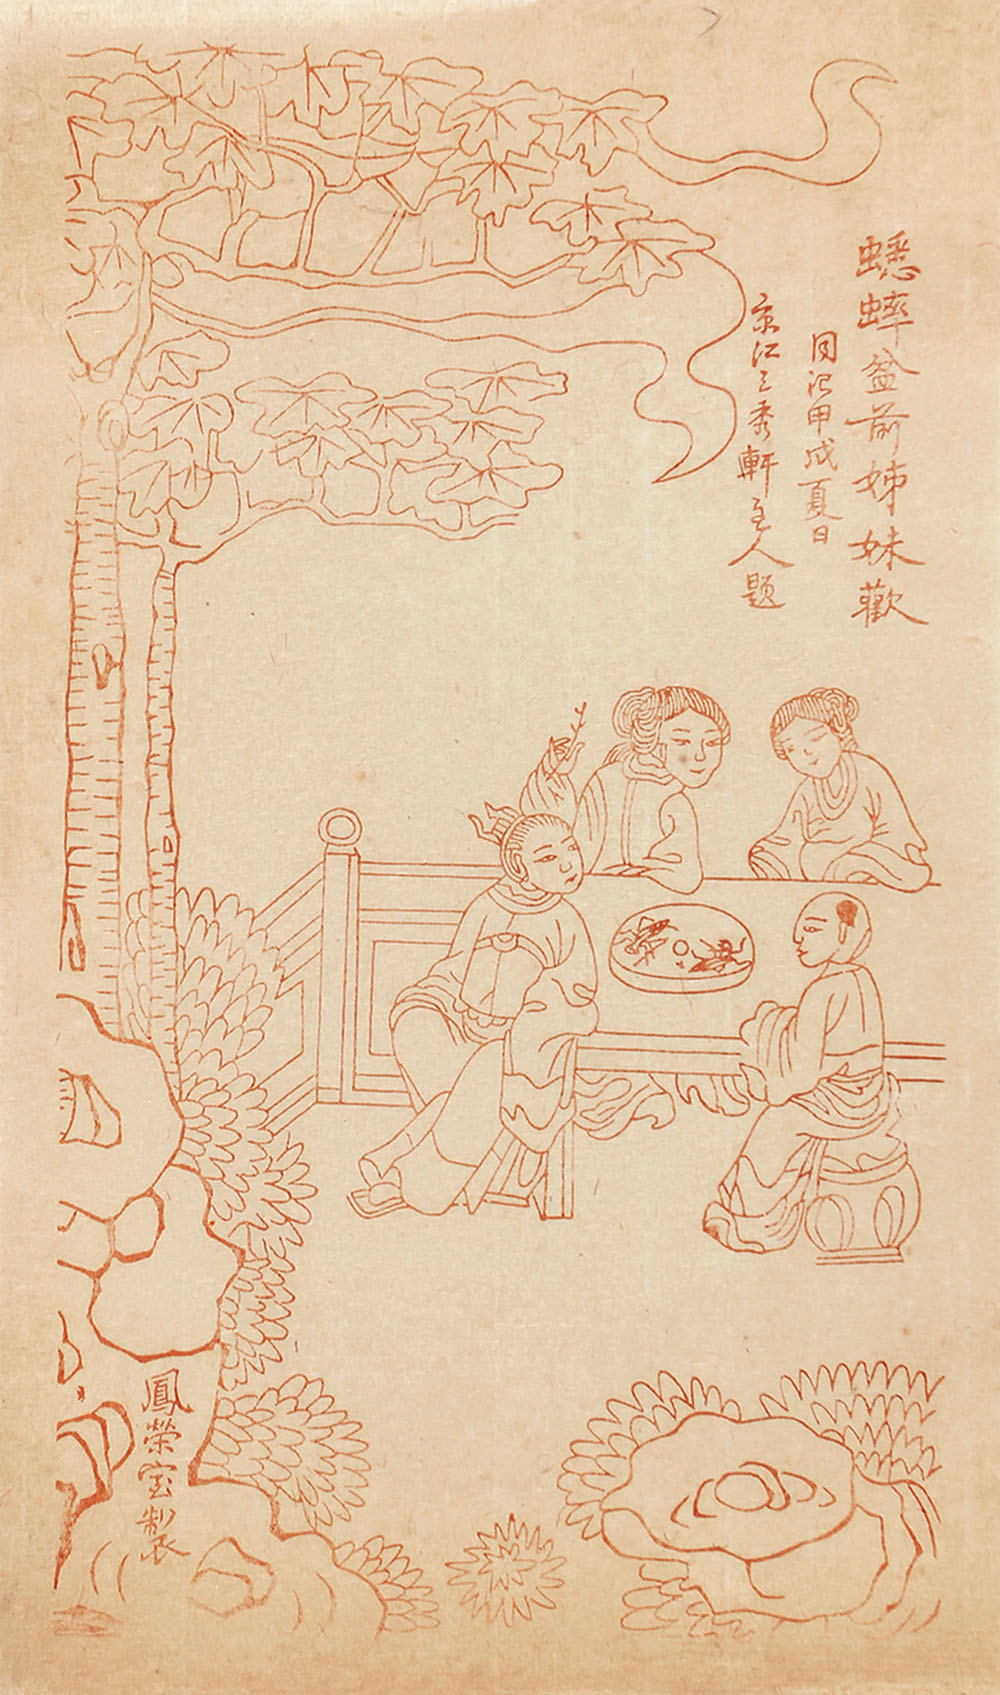 蟋蟀盆前姊妹歡
同治甲戌夏日
京江三秀軒主人題
鳳榮室製